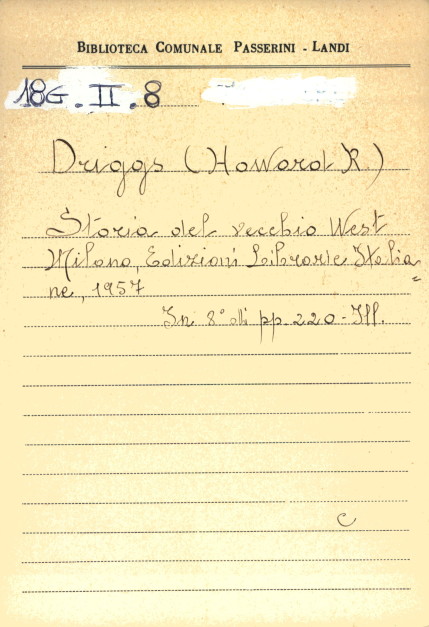 BIBLIOTECA COMUNALE PASSERINI - LANDI
18G.II.8
Driggs (Howard R.)
Storia del vecchio West
Milano, Edizioni Librarie Italia=
ne, 1957
In 8° pp. 220 - Ill.
C